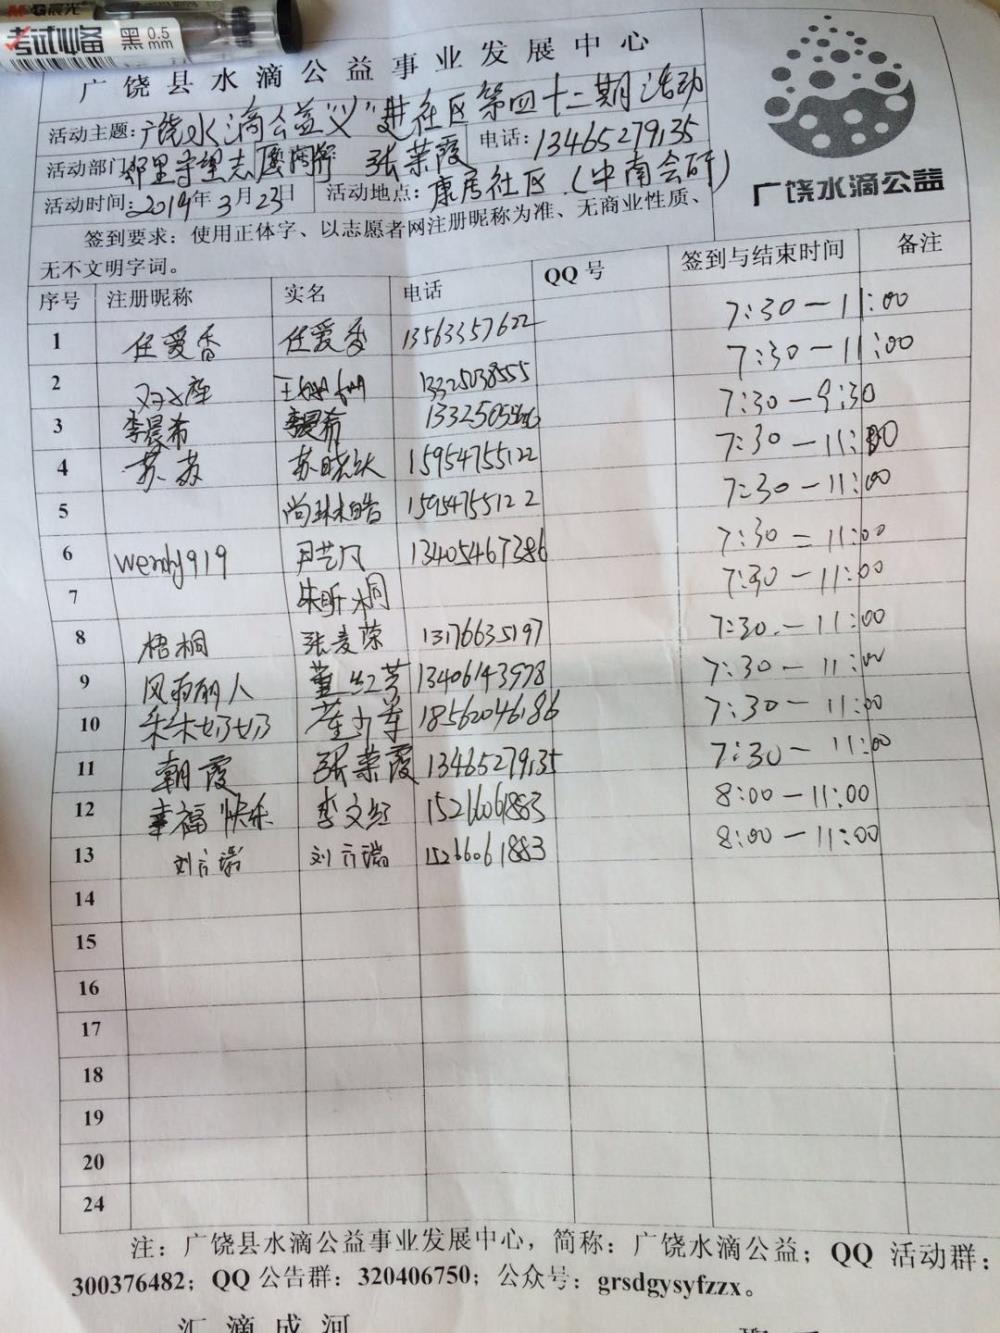 晨光
考试必备 黑 0.5mm
广饶县水滴公益事业发展中心
活动主题：广饶水滴公益"义"进社区第四十二期活动
活动部门 邻里守望志愿 张荣霞 电话：13465279135
活动时间：2019年3月23日 活动地点：康居社区（中南会所）
广饶水滴公益
签到要求：使用正体字、以志愿者网注册昵称为准、无商业性质、
无不文明字词。
序号 注册昵称 实名 电话 QQ号 签到与结束时间 备注
1 任爱香 任爱香 13563357622 7:30—11:00
2 双女座 王 13325038555 7:30—11:00
3 李晨希 李晨希 7:30—9:30
4 苏苏 苏晓 15954755122 7:30—11:00
5 尚琳皓 15954755122 7:30—11:00
6 wendy919 尹艺凡 13405467386 7:30—11:00
7 朱昕桐 7:30—11:00
8 梧桐 张麦荣 13176635197 7:30—11:00
9 风雨丽人 董红芳 13406143978 7:30—11:00
10 禾禾奶奶 18562046186 7:30—11:00
11 朝霞 张荣霞 13465279135 7:30—11:00
12 幸福快乐 李文红 15266061883 8:00—11:00
13 刘方瑞 刘方瑞 15266061883 8:00—11:00
14
15
16
17
18
19
20
24
注：广饶县水滴公益事业发展中心，简称：广饶水滴公益；QQ 活动群：
300376482；QQ 公告群：320406750；公众号：grsdgysyfzzx。
汇滴成河